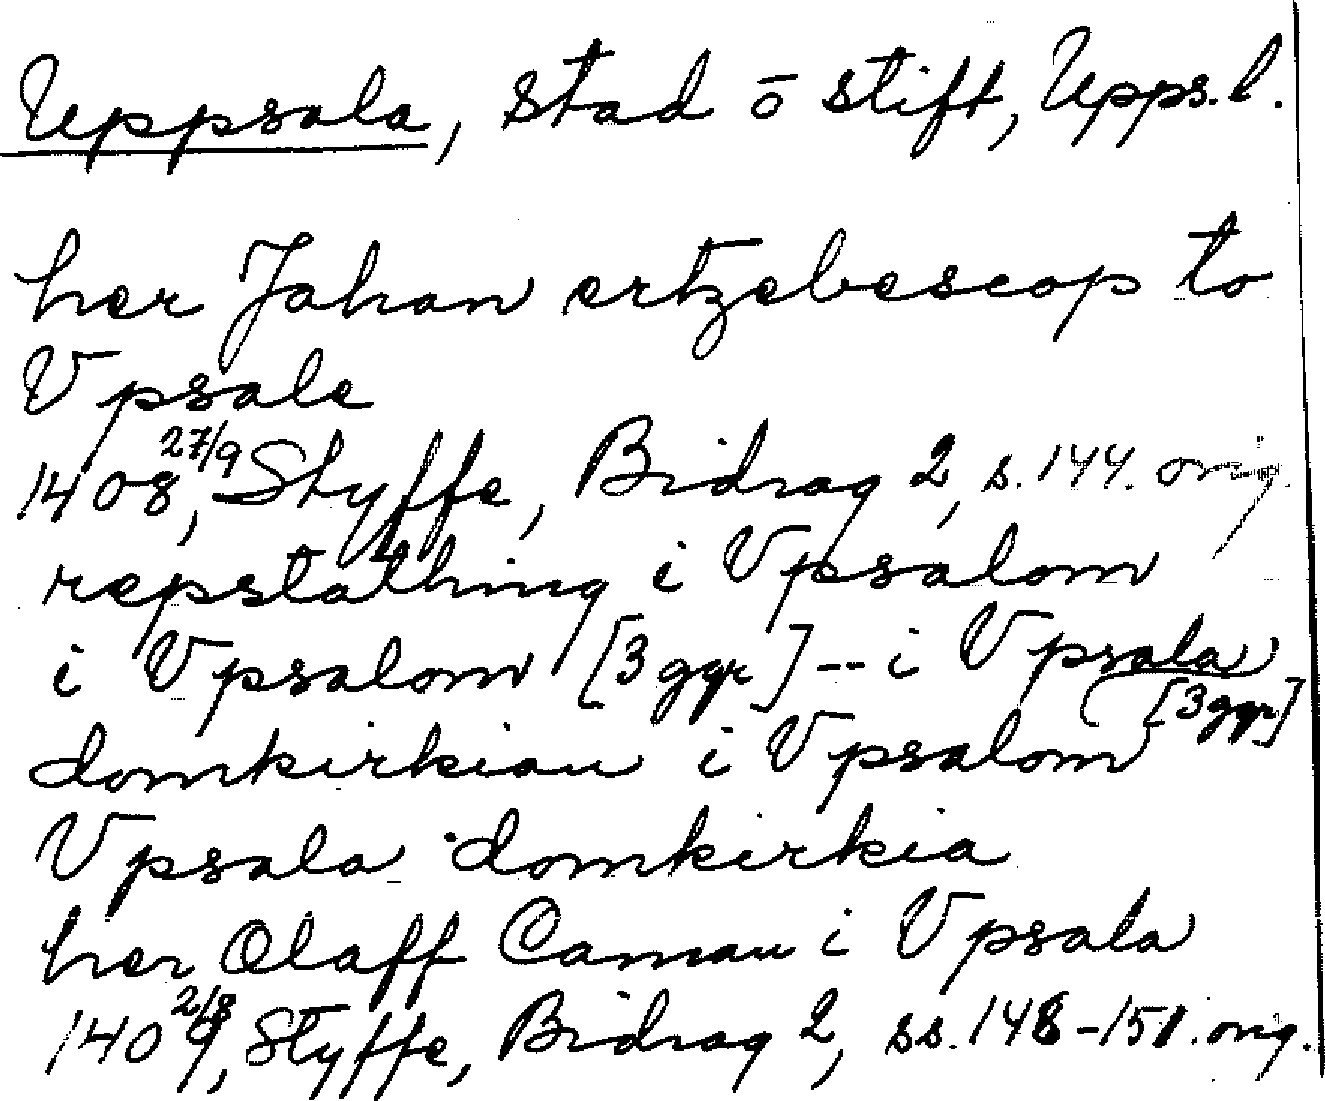 Uppsala, stad o stift, Upps. l.
her Johan ertzebescop to
Vpsale
1408 27/9, Styffe, Bidrag 2, s. 144. orig.
ræpstathing i Vpsalom
i Vpsalom [3 ggr] -- i Vpsala [3 ggr]
domkirkian i Vpsalom
Vpsala domkirkia
her Olaff Canian i Vpsala
1409 2/8, Styffe, Bidrag 2, ss. 148-151. orig.